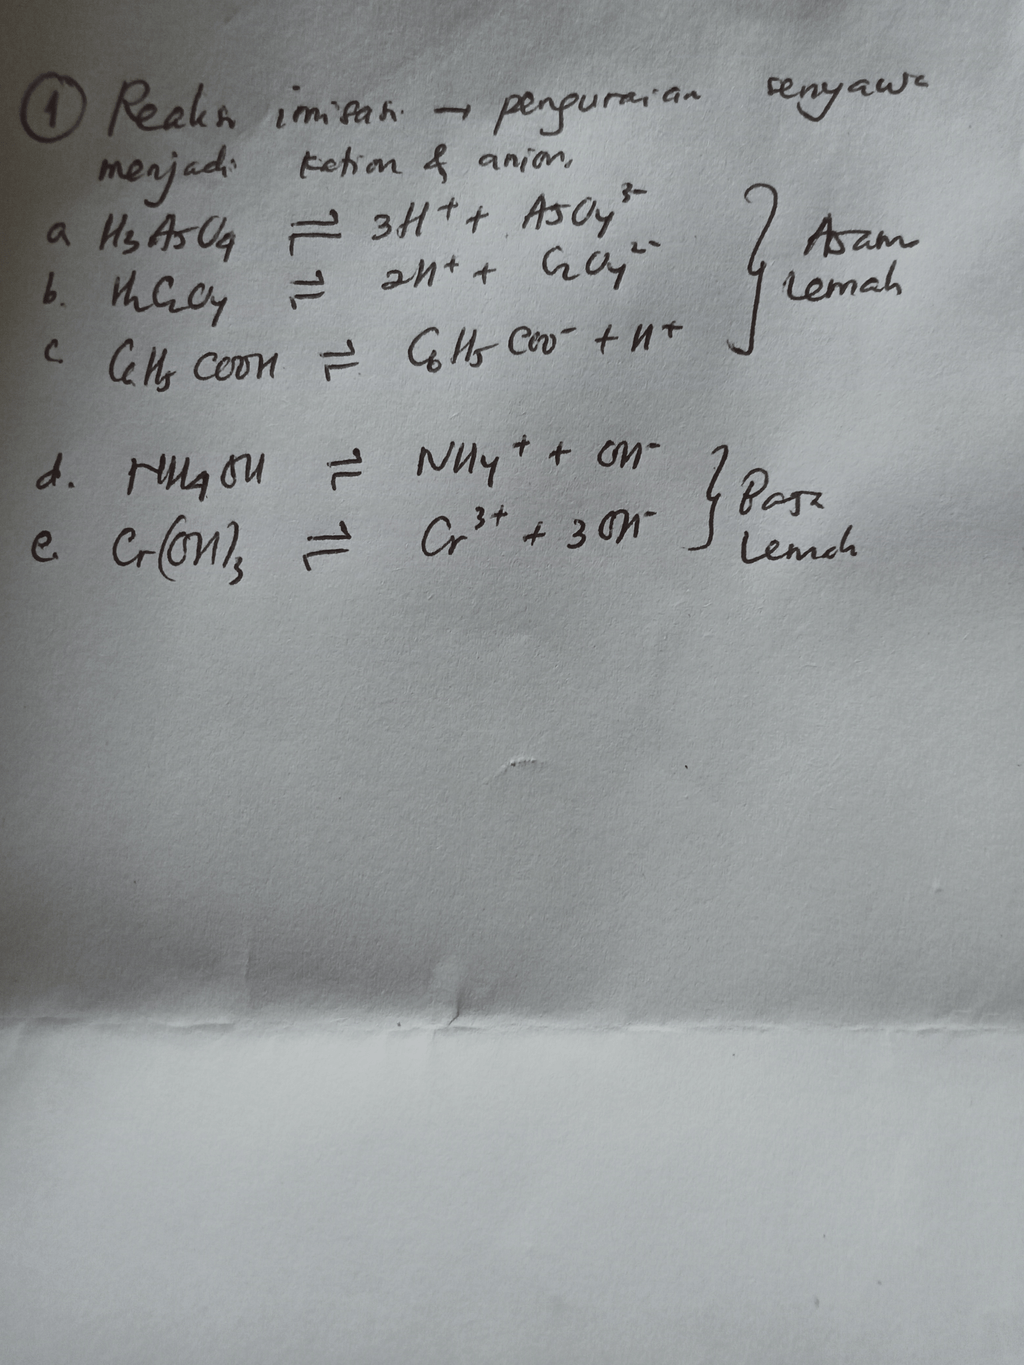 ① Reaksi ionisasi → penguraian senyawa
menjadi kation & anion.
a H₃AsO₄ ⇌ 3H⁺ + AsO₄³⁻
b. H₂C₂O₄ ⇌ 2H⁺ + C₂O₄²⁻
c C₆H₅COOH ⇌ C₆H₅COO⁻ + H⁺
} Asam
Lemah
d. NH₄OH ⇌ NH₄⁺ + OH⁻
e. Cr(OH)₃ ⇌ Cr³⁺ + 3OH⁻
} Basa
Lemah